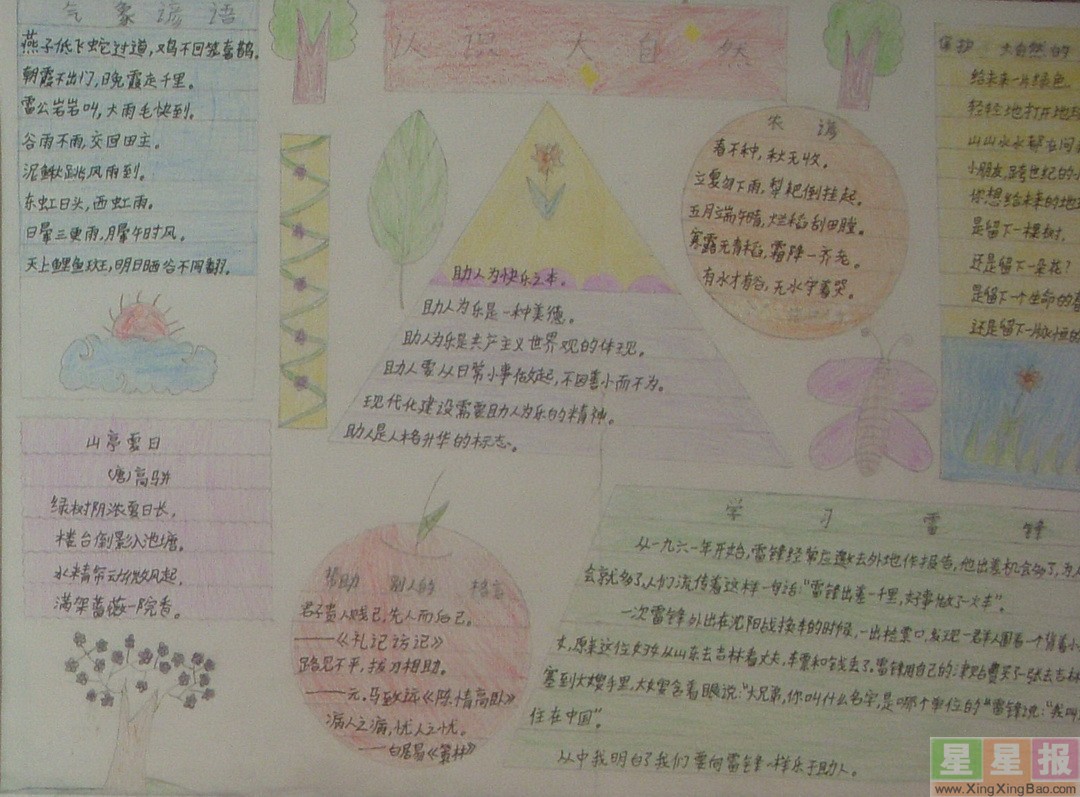 气象谚语
燕子低飞蛇过道，鸡不回笼喜鹊。
朝霞不出门，晚霞走千里。
雷公岩岩叫，大雨毛快到。
谷雨不雨，交回田主。
泥鳅跳，风雨到。
东虹日头，西虹雨。
日晕三更雨，月晕午时风。
天上鲤鱼斑，明日晒谷不用翻。
认识大自然
助人为快乐之本。
助人为乐是一种美德。
助人为乐是共产主义世界观的体现。
助人要从日常小事做起，不因善小而不为。
现代化建设需要助人为乐的精神。
助人是人格升华的标志。
农谚
春不种，秋无收。
立夏勿下雨，犁耙倒挂起。
五月端午晴，烂稻刮田塍。
寒露无青稻，霜降一齐老。
有水才有谷，无水守着哭。
保护大自然的
给未来一片绿色
轻轻地打开地球
山山水水都在问
小朋友，跨世纪的小
你想给未来的地球
是留下一棵树，
还是留下一朵花？
是留下一个生命的
还是留下一脉恒的
山亭夏日
(唐)高骈
绿树阴浓夏日长，
楼台倒影入池塘。
水精帘动微风起，
满架蔷薇一院香。
帮助别人的格言
君子贵人贱己，先人而后己。
——《礼记访记》
路见不平，拔刀相助。
——元，马致远《陈情高卧》
济人之病，忧人之忧。
——白居易《策林》
学习雷锋
从一九六一年开始，雷锋经常应邀去外地作报告，他出差机会多了，为人
会就多了，人们流传着这样一句话："雷锋出差一千里，好事做了一火车"。
一次雷锋外出在沈阳战换车的时候，一出检票口，发现一群人围着一个背着小
女，原来这位女孩从山东去吉林看丈夫，车票和钱丢了。雷锋用自己的津贴费买了一张去吉林
塞到大嫂手里，大嫂含着眼说："大兄弟，你叫什么名字，是哪个单位的"雷锋说："我叫
住在中国"。
从中我明白了我们要向雷锋一样乐于助人。
星星报
www.XingXingBao.com